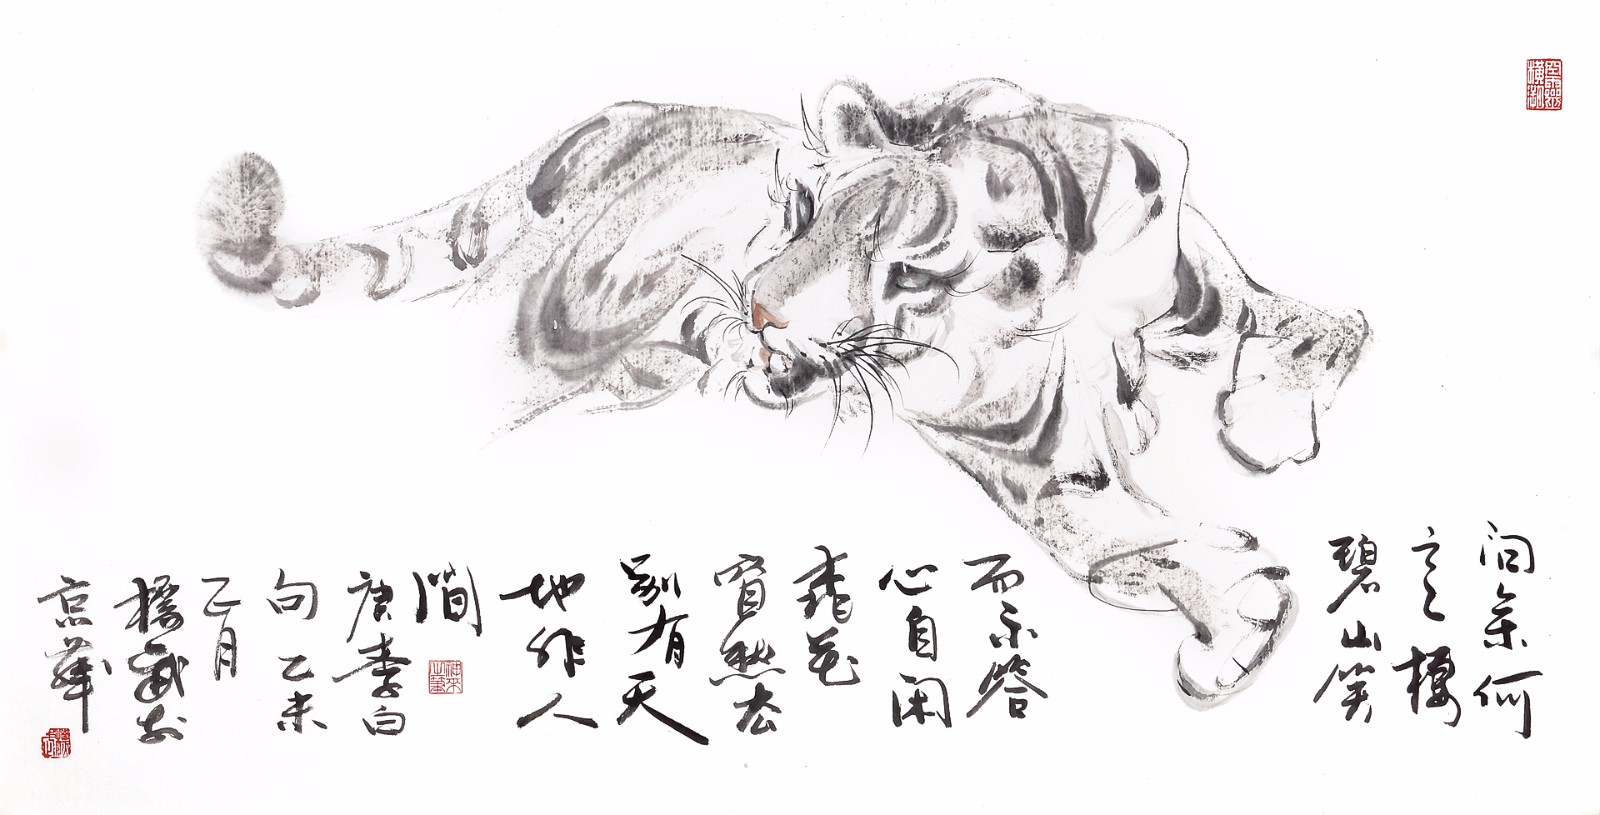 问余何
意棲
碧山笑
而不答
心自闲
桃花
窅然去
别有天
地非人
间
唐李白
句乙未
月
京華